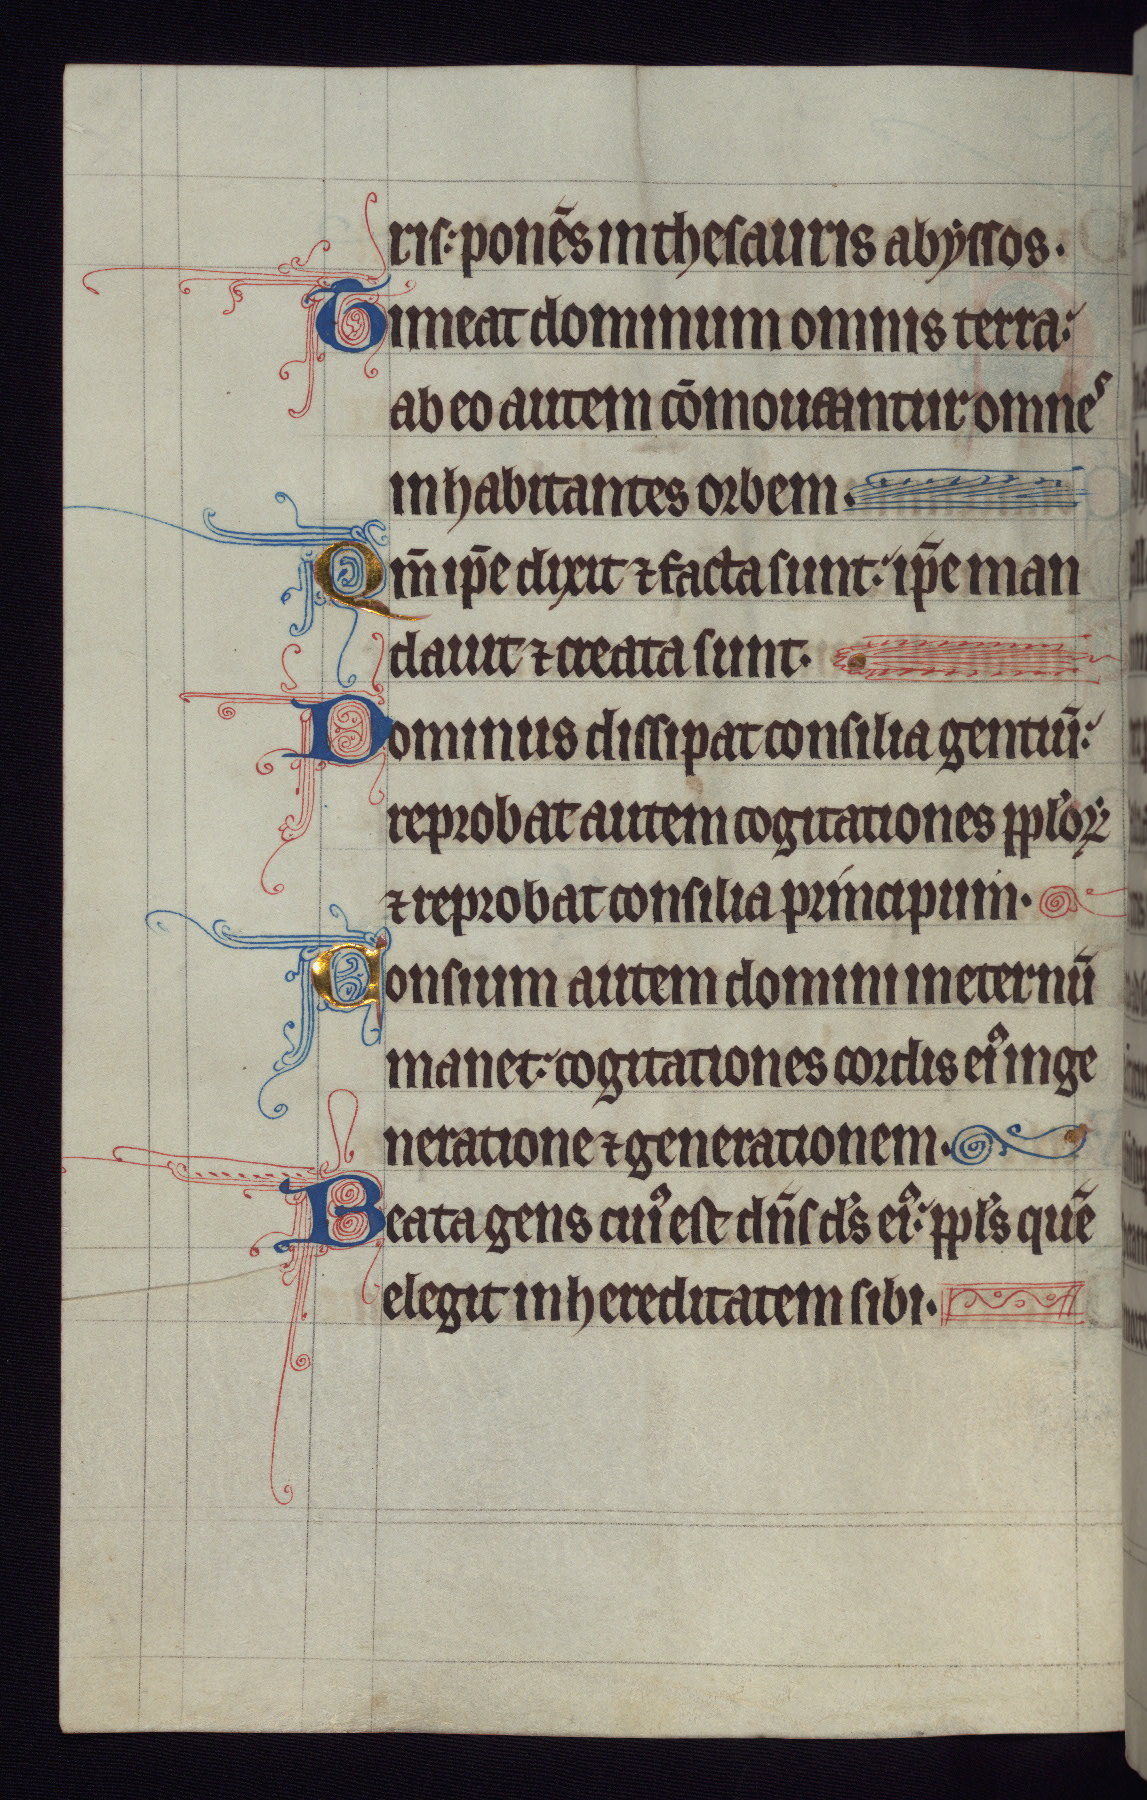 ris: ponēs in thesauris abyssos.
Timeat dominum omnis terra:
ab eo autem cōmoueantur omnes
inhabitantes orbem.
Qm̄ ip̄e dixit ⁊ facta sunt: ip̄e man
dauit ⁊ creata sunt.
Dominus dissipat consilia gentiū:
reprobat autem cogitationes ppl'oꝝ
⁊ reprobat consilia principum.
Consium autem domini in eternū
manet: cogitationes cordis eiꝰ in ge
neratione ⁊ generationem.
Beata gens cuiꝰ est dn̄s d's eiꝰ: ppl's quē
elegit in hereditatem sibi.